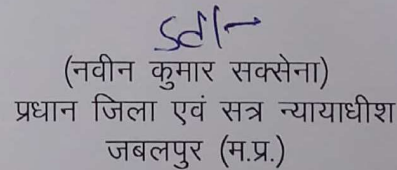 Sd/-
(नवीन कुमार सक्सेना)
प्रधान जिला एवं सत्र न्यायाधीश
जबलपुर (म.प्र.)